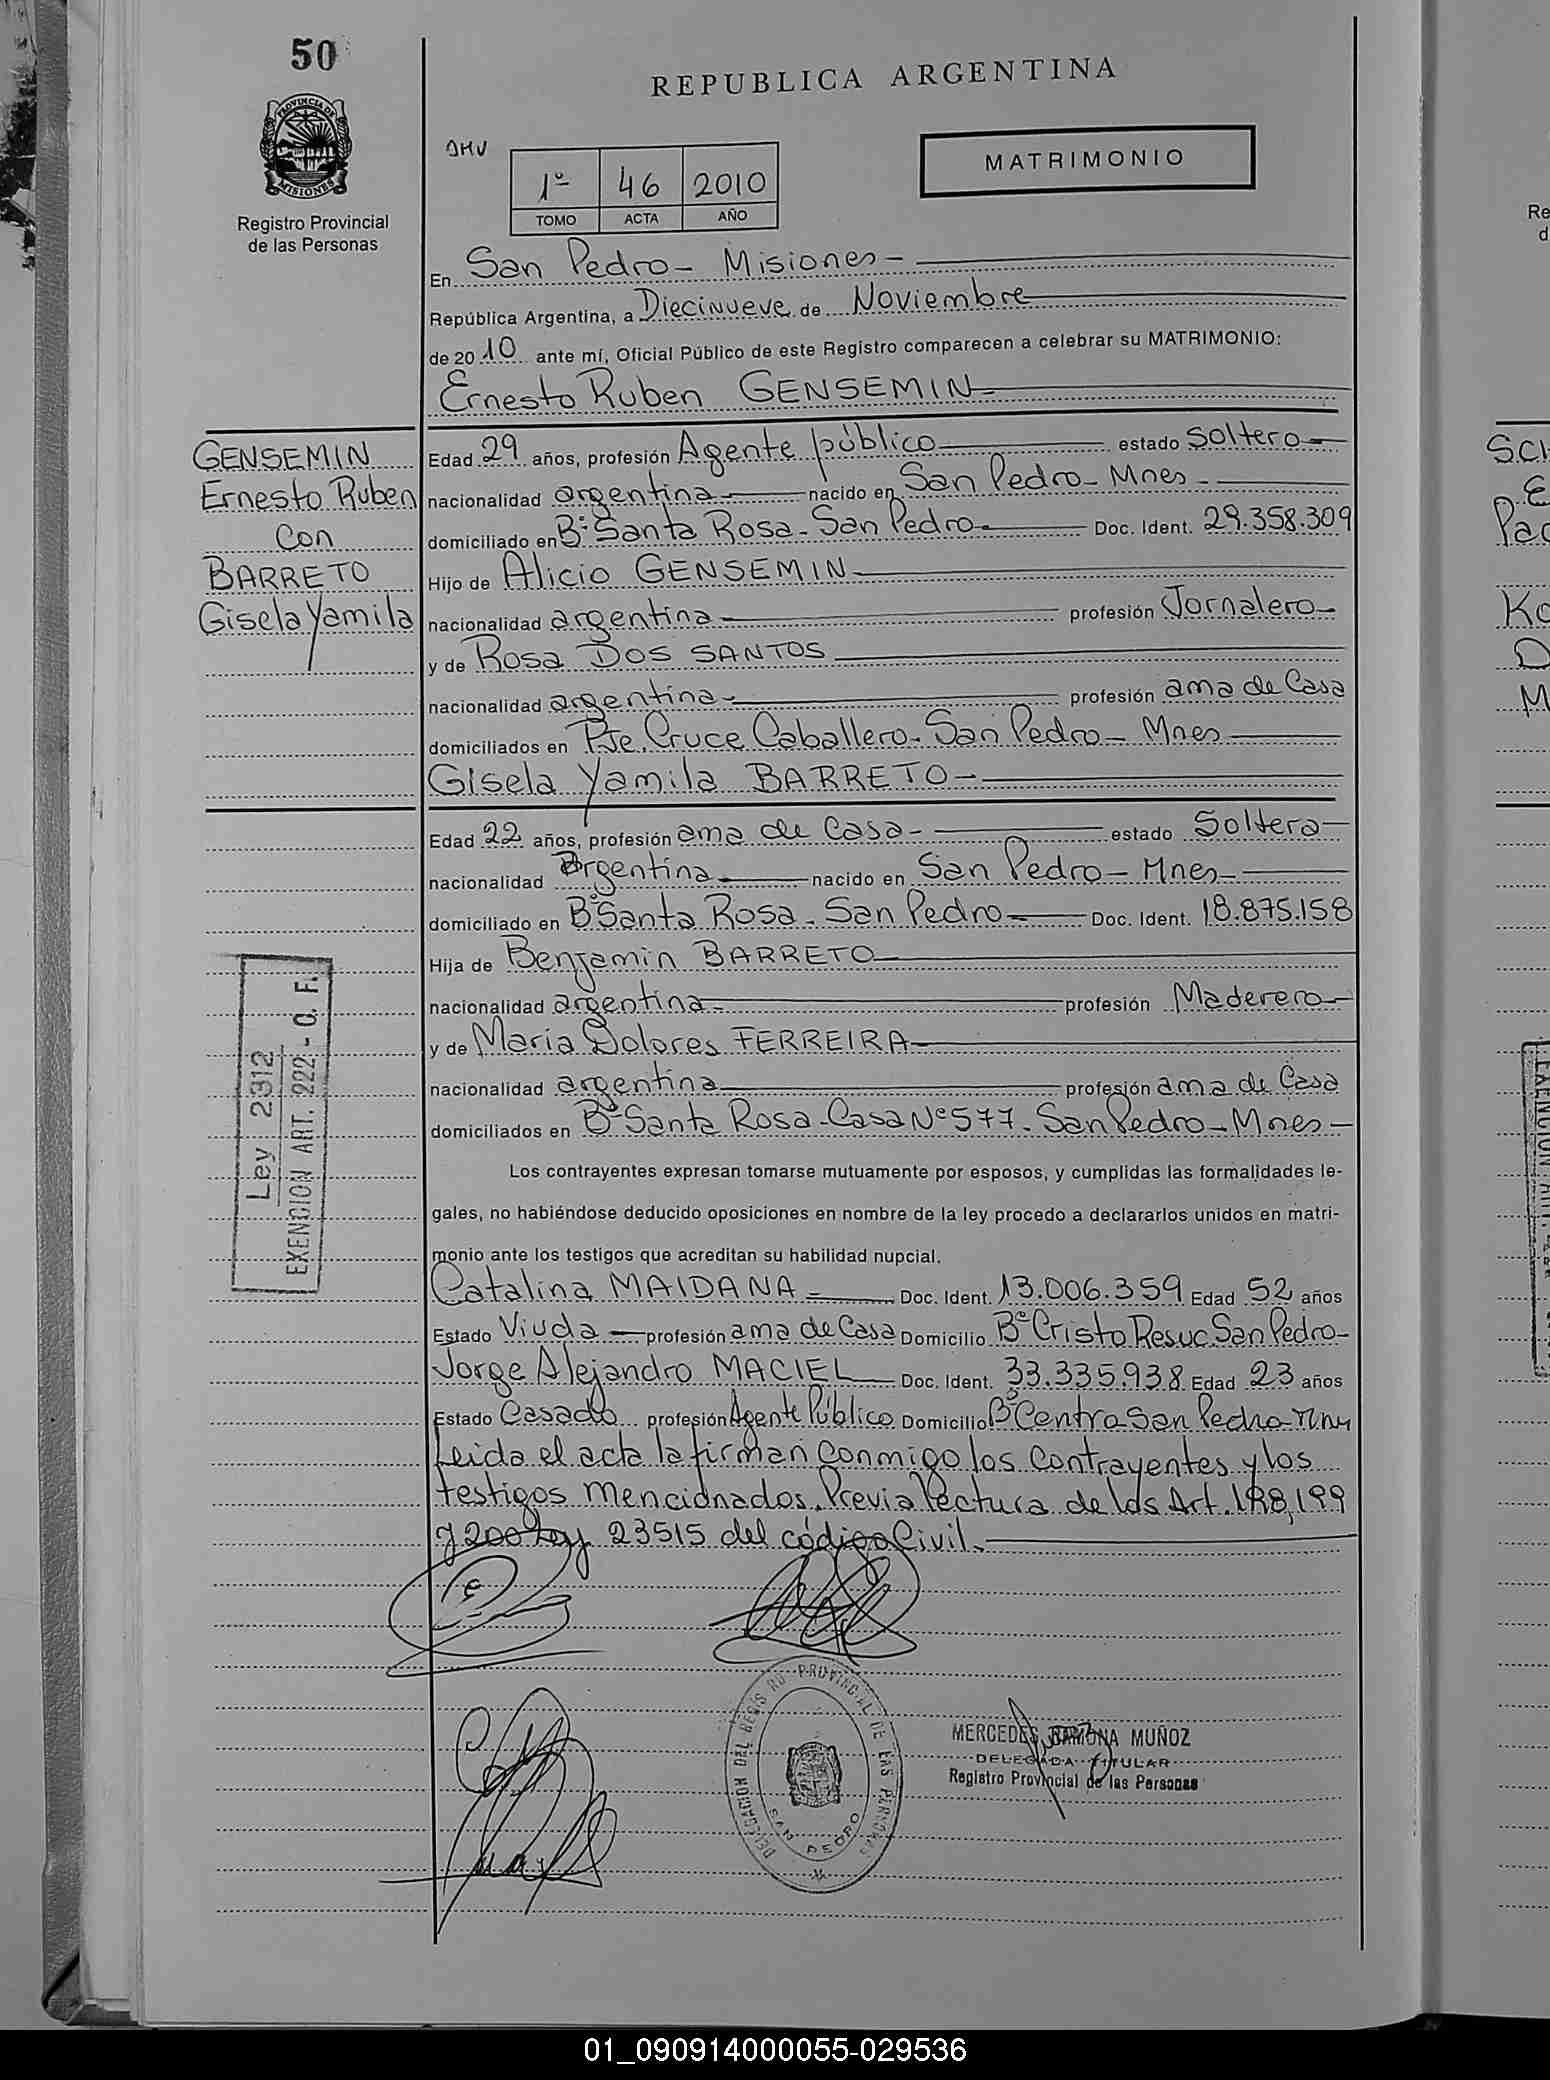 50
PROVINCIA DE
MISIONES
Registro Provincial
de las Personas
REPUBLICA ARGENTINA
DMV
1º 46 2010
TOMO ACTA AÑO
MATRIMONIO
En San Pedro - Misiones -
República Argentina, a Diecinueve de Noviembre
de 2010 ante mí, Oficial Público de este Registro comparecen a celebrar su MATRIMONIO:
Ernesto Ruben GENSEMIN
GENSEMIN
Ernesto Ruben
Con
BARRETO
Gisela Yamila
Edad 29 años, profesión Agente público estado Soltero
nacionalidad argentina nacido en San Pedro - Mnes -
domiciliado en Bº Santa Rosa - San Pedro - Doc. Ident. 29.358.309
Hijo de Alicio GENSEMIN
nacionalidad argentina profesión Jornalero
y de Rosa DOS SANTOS
nacionalidad argentina - profesión ama de Casa
domiciliados en Pje. Cruce Caballero - San Pedro - Mnes
Gisela Yamila BARRETO -
Edad 22 años, profesión ama de Casa - estado Soltera
nacionalidad Argentina nacido en San Pedro - Mnes -
domiciliado en Bº Santa Rosa - San Pedro - Doc. Ident. 18.875.158
Hija de Benjamin BARRETO
nacionalidad argentina - profesión Maderero
y de Maria Dolores FERREIRA
nacionalidad argentina profesión ama de Casa
domiciliados en Bº Santa Rosa - Casa Nº 577 - San Pedro - Mnes -
Ley 2312
EXENCION ART. 222 - O. F.
Los contrayentes expresan tomarse mutuamente por esposos, y cumplidas las formalidades le-
gales, no habiéndose deducido oposiciones en nombre de la ley procedo a declararlos unidos en matri-
monio ante los testigos que acreditan su habilidad nupcial.
Catalina MAIDANA - Doc. Ident. 13.006.359 Edad 52 años
Estado Viuda profesión ama de Casa Domicilio Bº Cristo Resuc. San Pedro -
Jorge Alejandro MACIEL Doc. Ident. 33.335.938 Edad 23 años
Estado Casado profesión Agente Público Domicilio Bº Centro San Pedro Mnes
Leida el acta la firman conmigo los Contrayentes y los
testigos mencionados. Previa Lectura de los Art. 198, 199
y 200 Ley 23515 del código Civil.
DELEGACION DEL REGISTRO PROVINCIAL DE LAS PERSONAS
SAN PEDRO
MERCEDES RAMONA MUÑOZ
DELEGADA TITULAR
Registro Provincial de las Personas
01_090914000055-029536